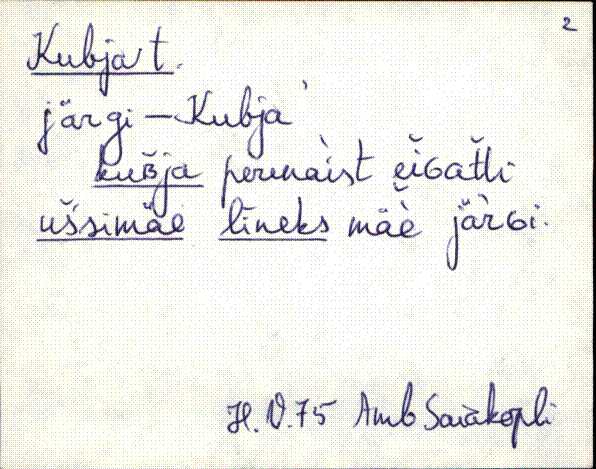 2
Kubja t.
järgi – Kubja
kuʙja peremaist eiGatti
ušsimäe līneks mäe järGi.
H. V. 75 Amb Saiakopli